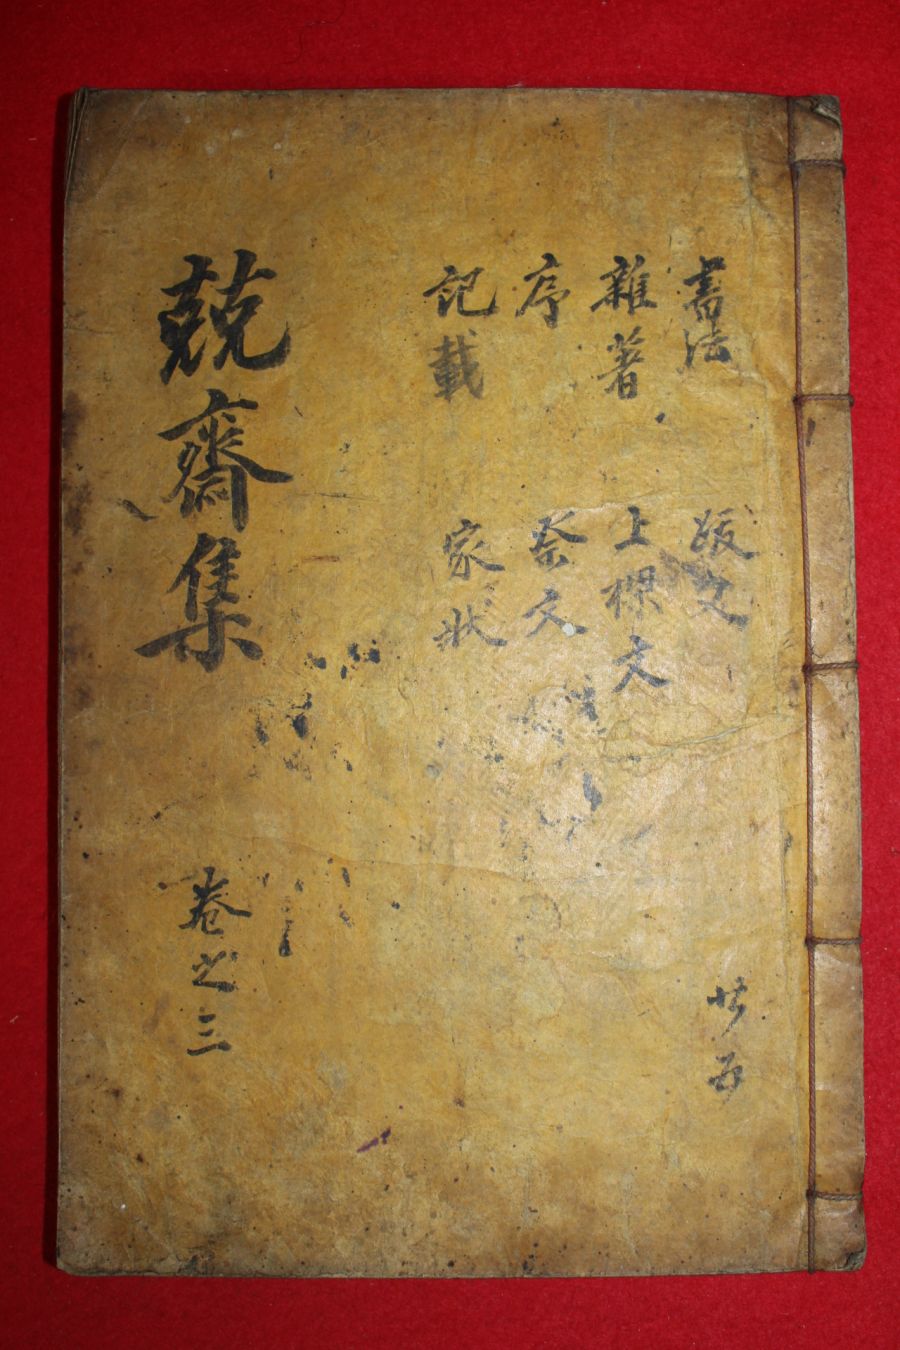 書法 跋文
共五
雜著 上樑文
序 祭文
記載 家狀
兢齋集
卷之三